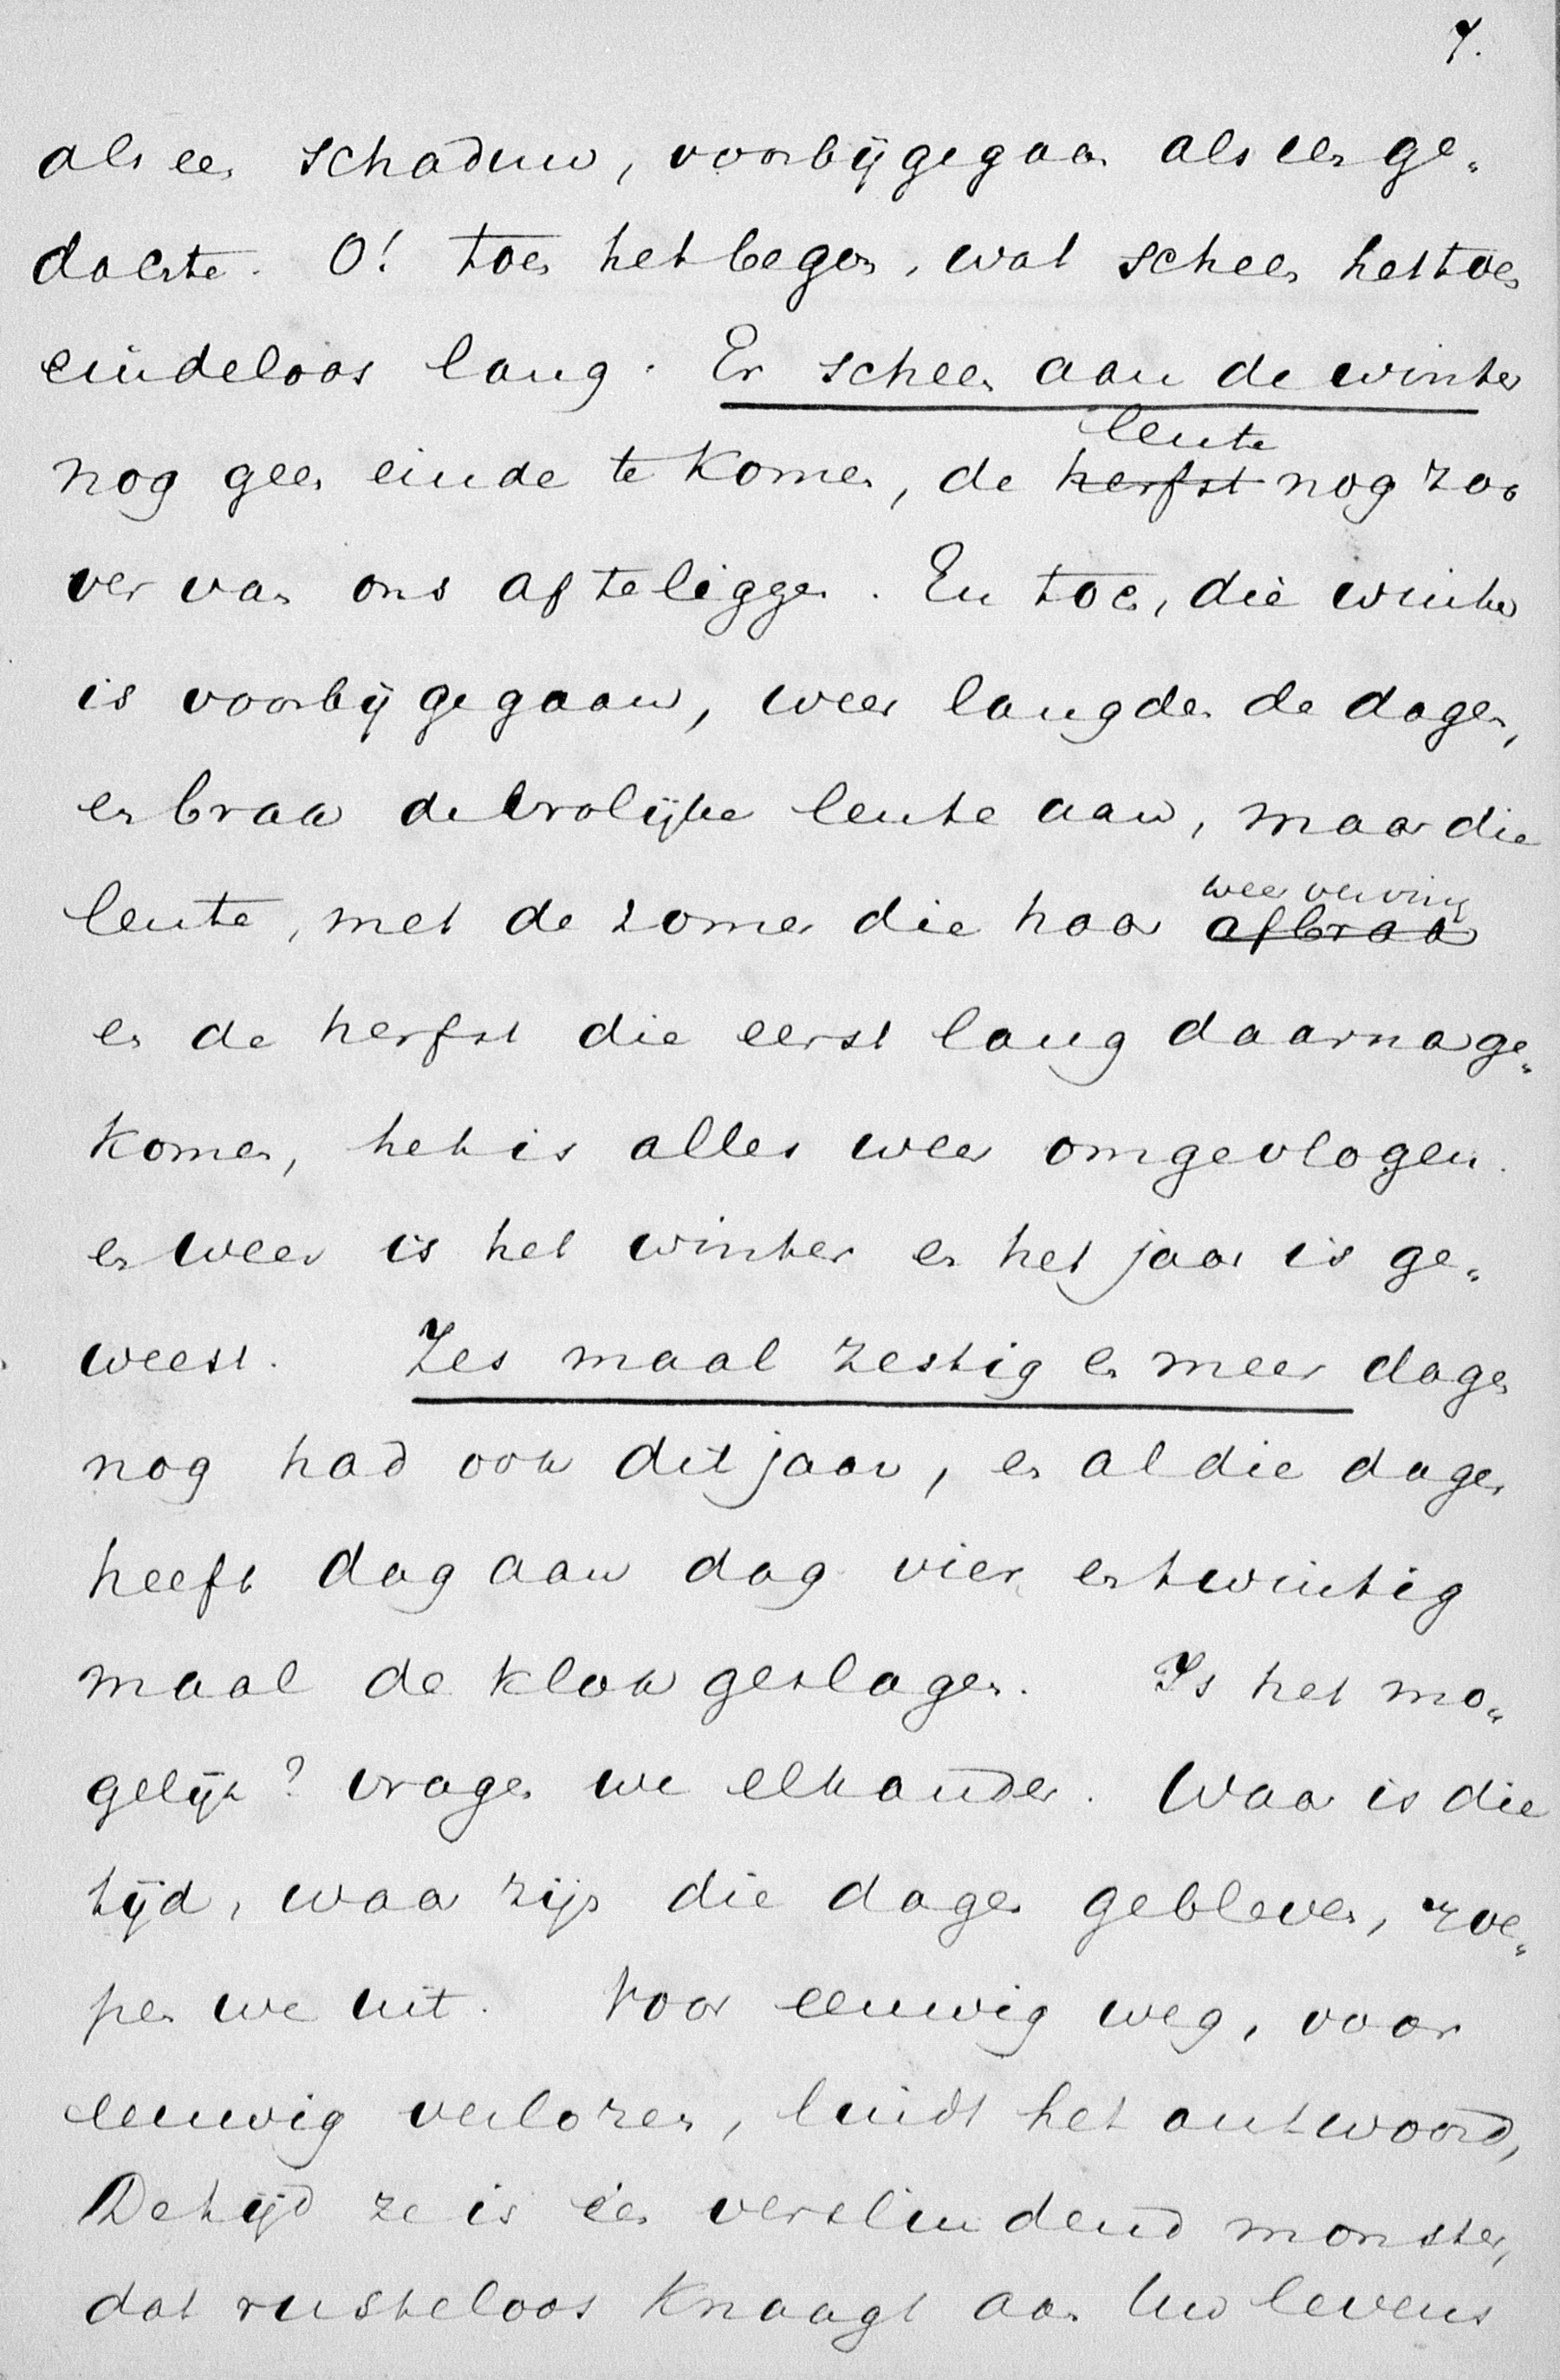 7.
als een schaduw, voorbijgegaan als een ge„
dachte. O! toen het begon, wat scheen het toen
eindeloos lang. Er scheen aan de winter
lente
nog geen einde te komen, de herfst nog zoo
ver van ons af te liggen. En toch, die winter
is voorbij gegaan, weer langden de dagen,
en brak de vrolijke lente aan, maar die
weer verving
lente, met de zomer die haar afbrak
en de herfst die eerst lang daarna ge„
komen, het is alles weer omgevlogen.
en weer is het winter en het jaar is ge„
weest. Zes maal zestig en meer dagen
nog had ook dit jaar, en al die dagen
heeft dag aan dag vier en twintig
maal de klok geslagen. Is het mo„
gelijk? vragen we elkander. Waar is die
tijd, waar zijn die dagen gebleven, roe„
pen we uit. Voor eeuwig weg, voor
eeuwig verloren, luidt het antwoord,
De tijd ze is één verslindend monster,
dat rusteloos knaagt aan Uw levens